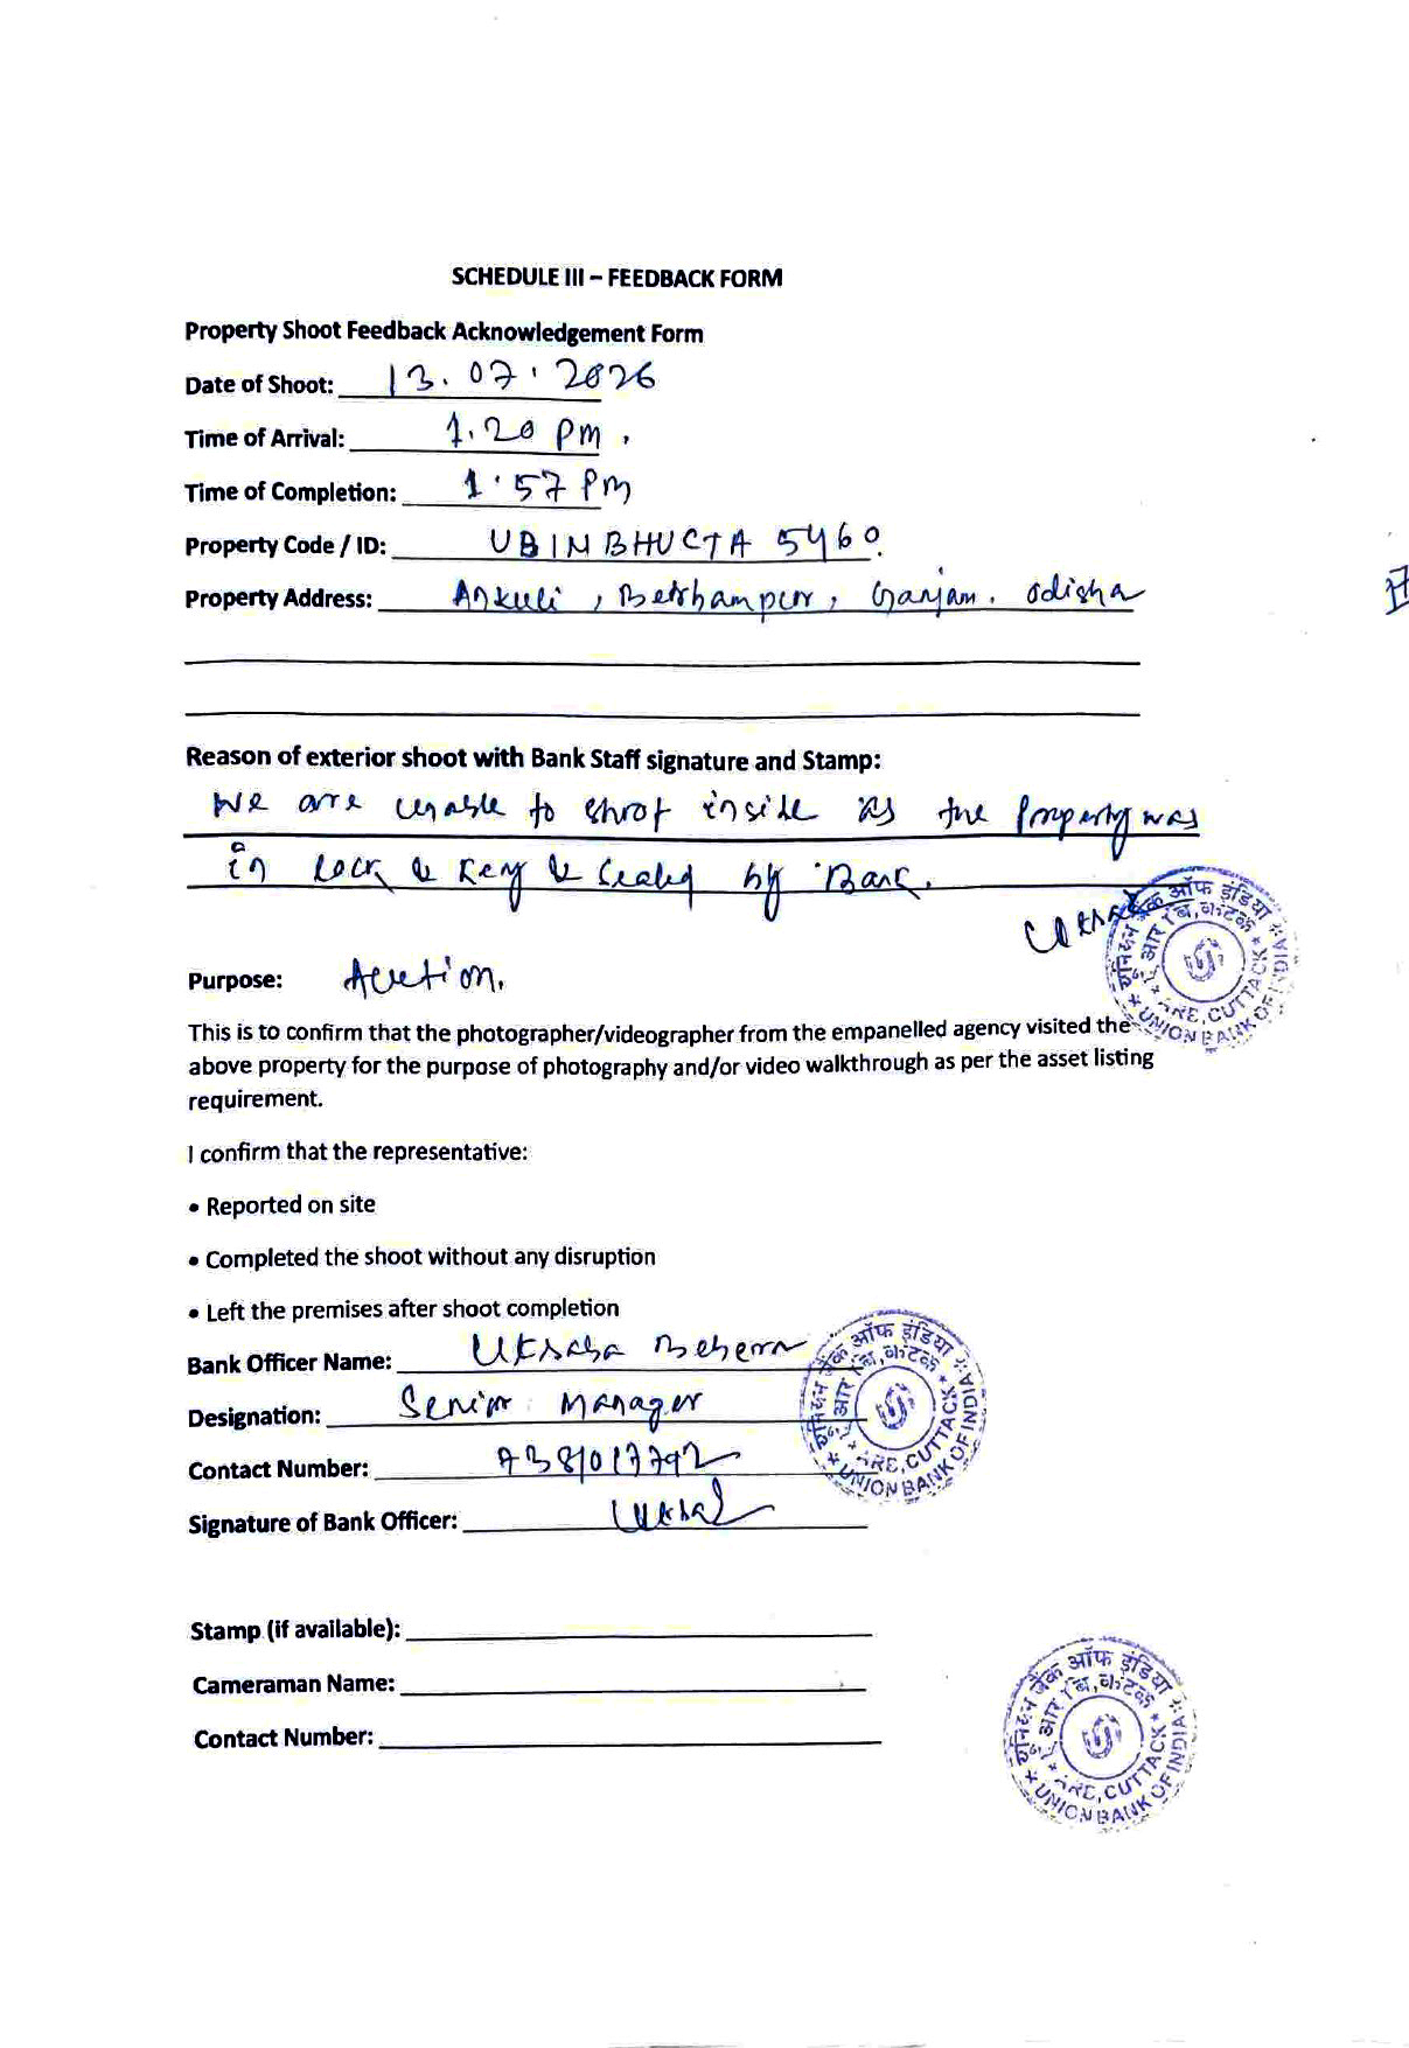 SCHEDULE III – FEEDBACK FORM
Property Shoot Feedback Acknowledgement Form
Date of Shoot: 13.07.2026
Time of Arrival: 1.20 pm.
Time of Completion: 1.57 Pm
Property Code / ID: UBINBHUCTA 5460.
Property Address: Ankuli, Berhampur, Ganjam. Odisha
Reason of exterior shoot with Bank Staff signature and Stamp:
We are unable to shoot inside as the Property was
in Lock & Key & Sealed by Bank.
Utkal
यूनियन बैंक ऑफ इंडिया
ARE, CUTTACK
UNION BANK OF INDIA
Purpose: Auction.
This is to confirm that the photographer/videographer from the empanelled agency visited the
above property for the purpose of photography and/or video walkthrough as per the asset listing
requirement.
I confirm that the representative:
• Reported on site
• Completed the shoot without any disruption
• Left the premises after shoot completion
Bank Officer Name: Behera
Designation: Senior Manager
यूनियन बैंक ऑफ इंडिया
ARE, CUTTACK
UNION BANK OF INDIA
Contact Number:
Signature of Bank Officer:
Stamp (if available):
Cameraman Name:
Contact Number:
यूनियन बैंक ऑफ इंडिया
ARE, CUTTACK
UNION BANK OF INDIA